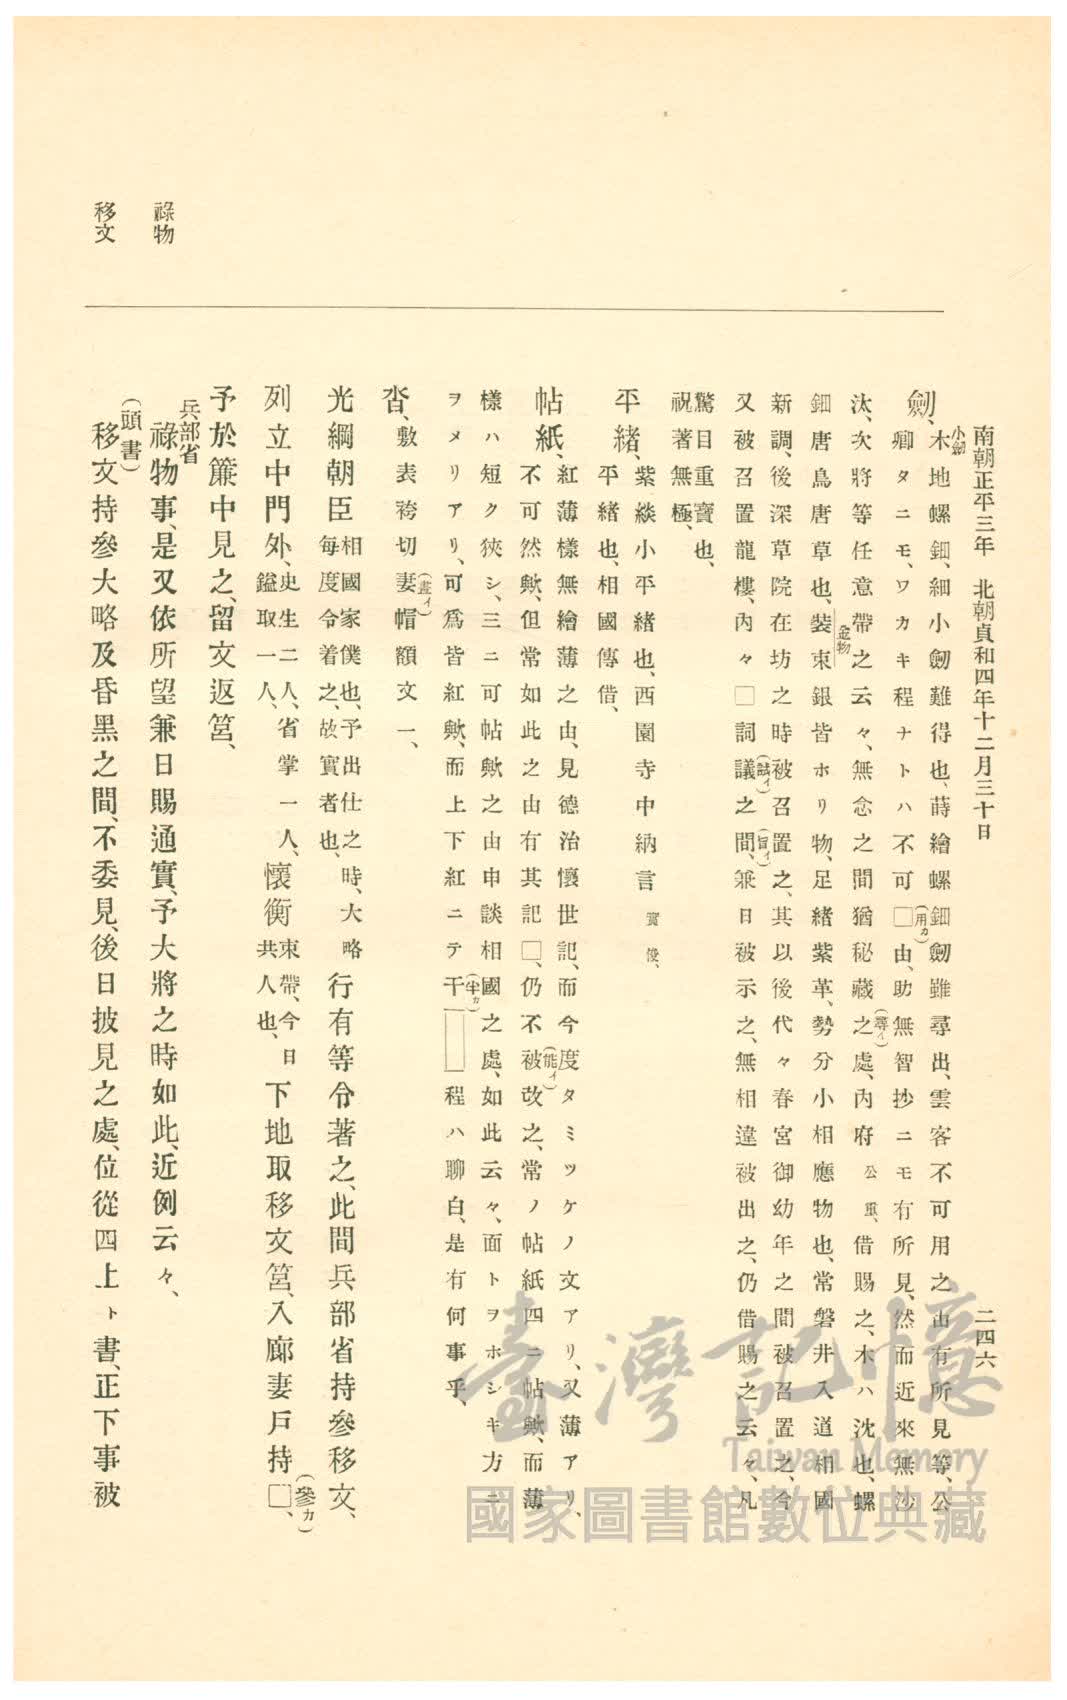 南朝正平三年　北朝貞和四年十二月三十日
二四六
小劒
劒、木地螺鈿、細小劒難得也、蒔繪螺鈿劒雖尋出、雲客不可用之由有所見等、公
卿タニモ、ワカキ程ナトハ不可□(用カ)由、助無智抄ニモ有所見、然而近來無沙
汰、次將等任意帶之云々、無念之間猶秘藏之(尋イ)處、內府公重、借賜之、木ハ沈也、螺
鈿唐鳥唐草也、裝束金物銀皆ホリ物、足緒紫革、勢分小相應物也、常磐井入道相國
新調、後深草院在坊之時被召置之、其以後代々春宮御幼年之間被召置之、今
又被召置龍樓、內々□詞議(試イ)之間(旨イ)、兼日被示之、無相違被出之、仍借賜之云々、凡
驚目重寶也、
祝著無極、
平緒、紫緂小平緒也、西園寺中納言實俊、
平緒也、相國傳借、
帖紙、紅薄樣無繪薄之由、見德治懷世記、而今度タミツケノ文アリ、又薄アリ、
不可然歟、但常如此之由有其記□、仍不被(能イ)改之、常ノ帖紙四ニ帖歟、而薄
樣ハ短ク狹シ、三ニ可帖歟之由申談相國之處、如此云々、面トヲホシキ方ニ
ヲメリアリ、可爲皆紅歟、而上下紅ニテ干(半カ)□程ハ聊白、是有何事乎、
沓、敷表袴切妻(畫イ)帽額文一、
光綱朝臣相國家僕也、予出仕之時、大略每度令着之、故實者也、行有等令著之、此間兵部省持參移文、
列立中門外、史生二人、省掌一人、鎰取一人、懷衡束帶、今日共人也、下地取移文筥、入廊妻戶持□(參カ)、
予於簾中見之、留文返筥、
兵部省
祿物
祿物事、是又依所望兼日賜通實、予大將之時如此、近例云々、
(頭書)
移文
移文持參大略及昏黑之間、不委見、後日披見之處、位從四上ト書、正下事被
臺灣記憶
Taiwan Memory
國家圖書館數位典藏